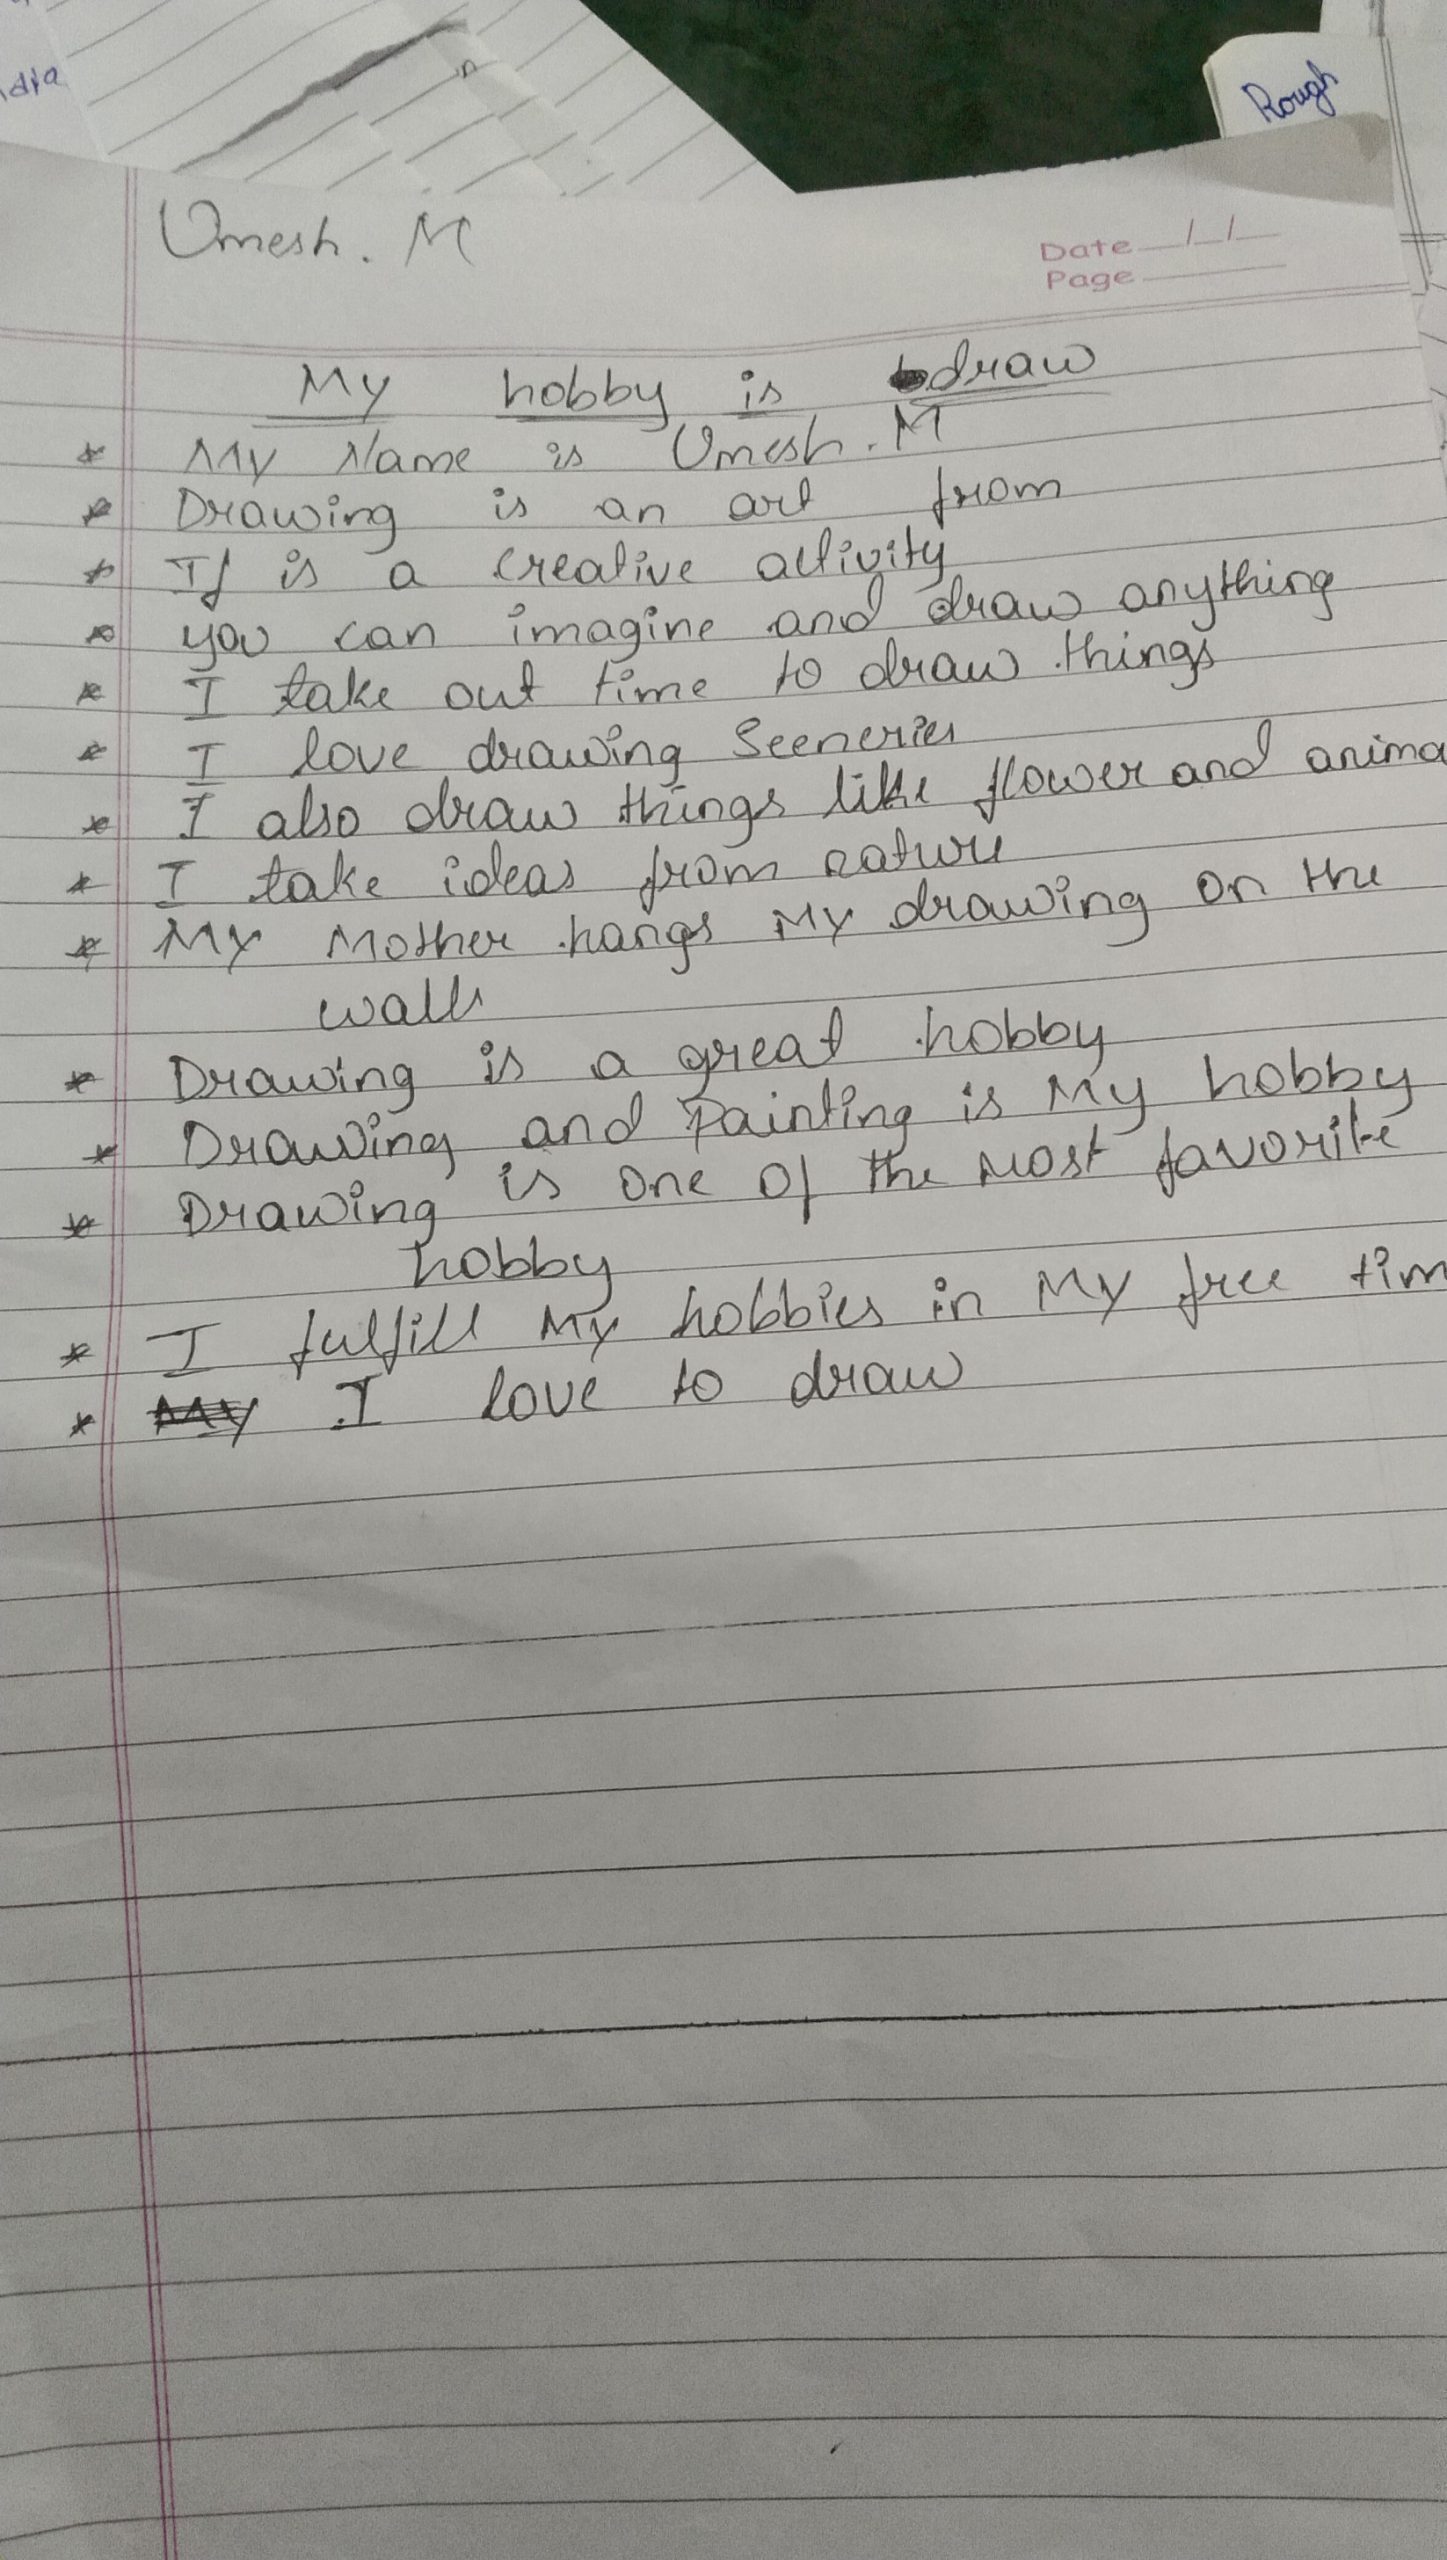 dia
Rough
Umesh. M
Date __/__/__
Page
My hobby is draw
* My Name is Umesh. M
* Drawing is an art from
* It is a creative activity
* you can imagine and draw anything
* I take out time to draw things
* I love drawing Seeneries
* I also draw things like flower and anima
* I take ideas from nature
* My Mother hangs My drawing on the
walls
* Drawing is a great hobby
* Drawing and Painting is My hobby
* Drawing is one of the Most favorite
hobby
* I fulfill My hobbies in My free tim
* My I love to draw